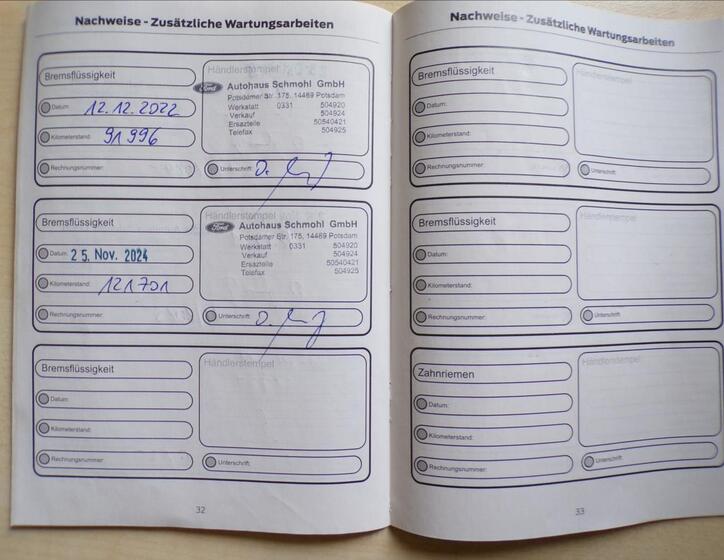 Nachweise - Zusätzliche Wartungsarbeiten
Bremsflüssigkeit
Datum: 12.12.2022
Kilometerstand: 91 996
Rechnungsnummer:
Händlerstempel
Ford Autohaus Schmohl GmbH
Potsdamer Str. 175, 14469 Potsdam
Werkstatt 0331 504920
Verkauf 504924
Ersatzteile 50540421
Telefax 504925
Unterschrift:
Bremsflüssigkeit
Datum: 25. Nov. 2024
Kilometerstand: 121701
Rechnungsnummer:
Händlerstempel
Ford Autohaus Schmohl GmbH
Potsdamer Str. 175, 14469 Potsdam
Werkstatt 0331 504920
Verkauf 504924
Ersatzteile 50540421
Telefax 504925
Unterschrift:
Bremsflüssigkeit
Datum:
Kilometerstand:
Rechnungsnummer:
Händlerstempel
Unterschrift:
32
Nachweise - Zusätzliche Wartungsarbeiten
Bremsflüssigkeit
Datum:
Kilometerstand:
Rechnungsnummer:
Händlerstempel
Unterschrift:
Bremsflüssigkeit
Datum:
Kilometerstand:
Rechnungsnummer:
Händlerstempel
Unterschrift:
Zahnriemen
Datum:
Kilometerstand:
Rechnungsnummer:
Händlerstempel
Unterschrift:
33